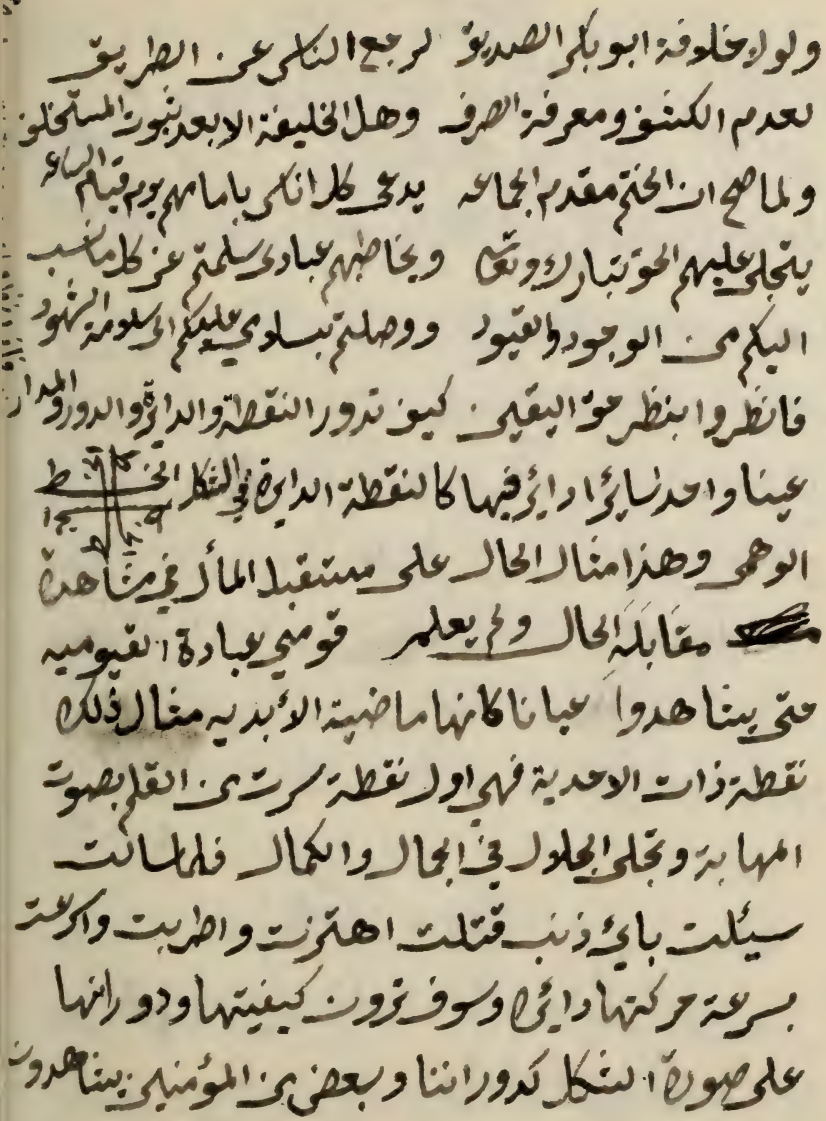 ولولا خلافة ابو بكر الصديق لرجع الناس عن الطريق
لعدم الكشف ومعرفة الصرف وهل الخليفة الا بعد ثبوت المستخلف
ولما صح ان الختم مقدم الجماعه يدعى كل اناس بامامهم يوم قيام الساعه
يتجلى عليهم الحق تبارك وتعالى ويخاطبهم عبادى سلمتم عن كل ما نسب
اليكم من الوجود والقيود ووصلتم بسلامي عليكم الى سلامة الشهود
فانظروا بنظر حق اليقين كيف تدور النقطة والدائرة والدور والمدار
عينا واحد سايرا دائر فيها كالنقطة الدايرة في الشكل الخط
الوهمى وهذا مثال الحال على مستقبل المأل في مشاهدة
مقابلة الحال ولم يعلم قومي عبادة القيوميه
حتى يشاهدوا عيانا كانها ماضية الأبديه مثال ذلك
نقطة ذات الاحدية فهي اول نقطة سرت من القلم بصوت
المهابة وتجلى الجلال في الجمال والكمال فلما سالت
سيئلت بايء ذنب قتلت اهتزت واطربت
بسرعة حركتها دائرة وسوف ترون كيفيتها ودورانها
على صورة الشكل كدوراننا وبعض من المؤمنين يشاهدون